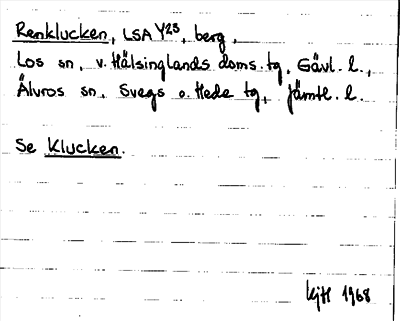 Renklucken, LSA Y25, berg,
Los sn, v. Hälsinglands doms. tg, Gävl. l.,
Älvros sn, Svegs o. Hede tg, Jämtl. l.
Se Klucken.
KjH 1968